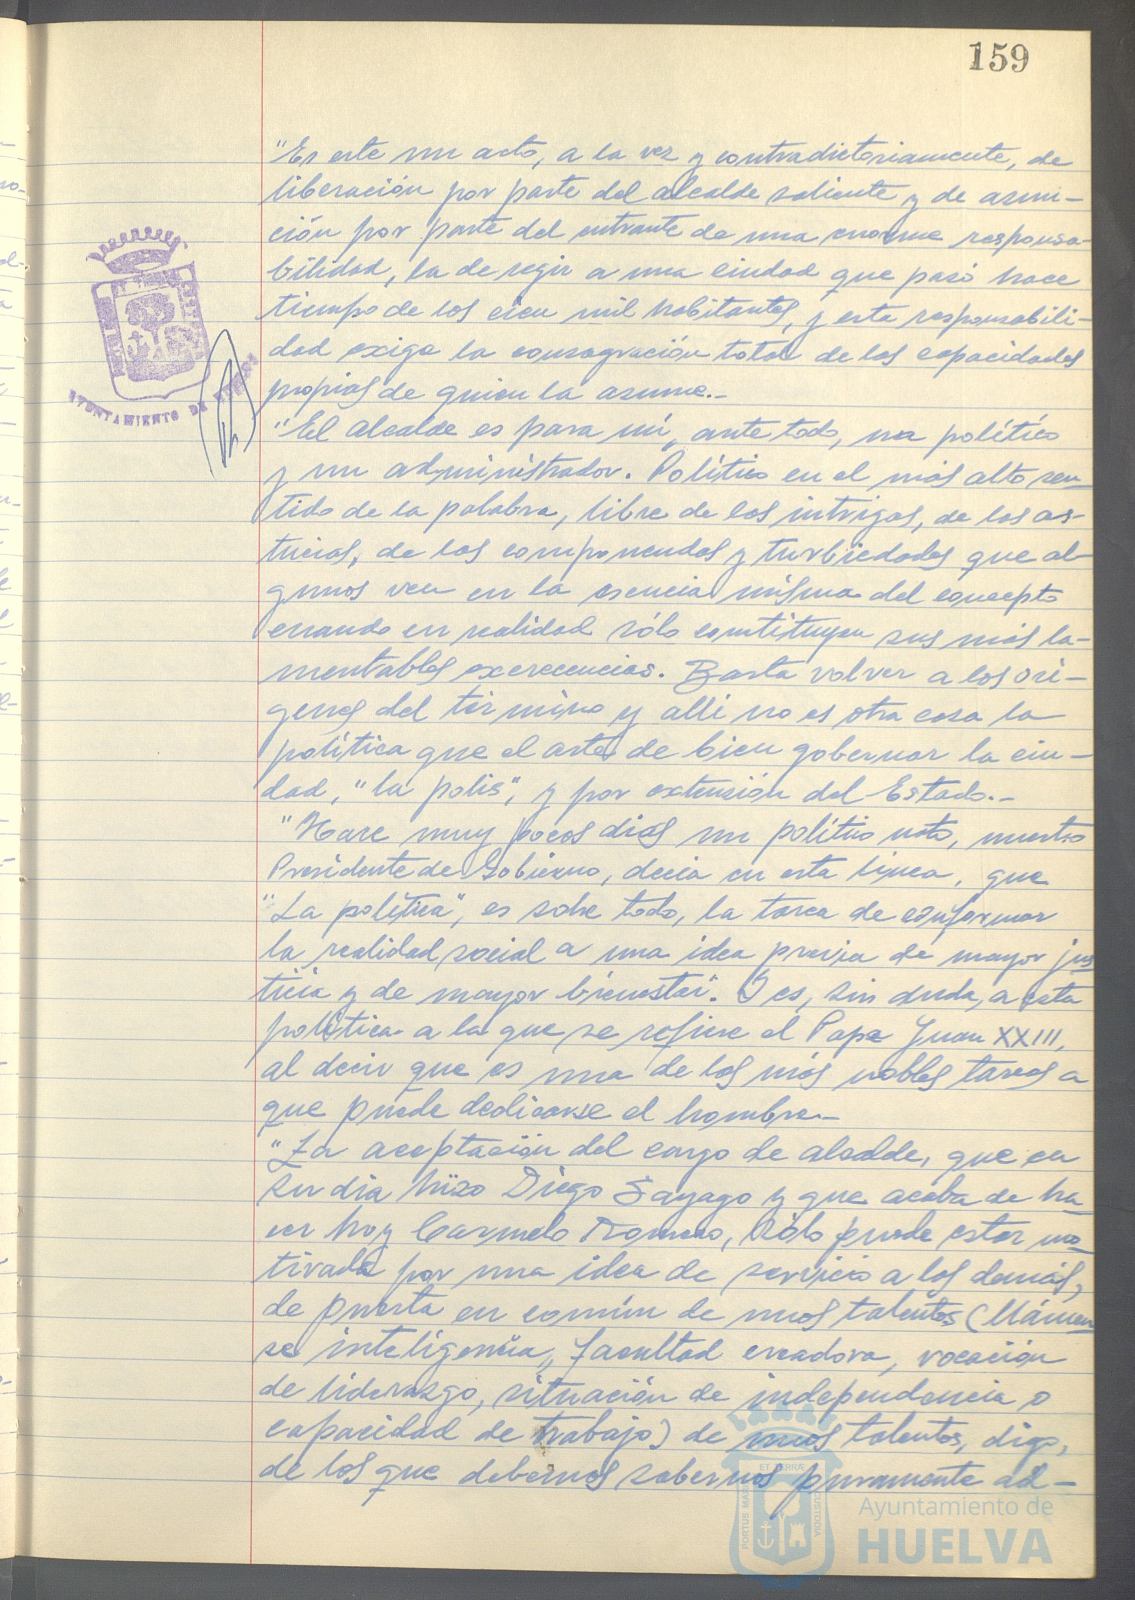 159
"Es este un acto, a la vez y contradictoriamente, de
liberación por parte del alcalde saliente y de asun-
ción por parte del entrante de una enorme responsa-
bilidad, la de regir a una ciudad que pasó hace
tiempo de los cien mil habitantes, y esta responsabili-
dad exige la consagración total de las capacidades
propias de quien la asume.-
"El alcalde es para mí, ante todo, un político
y un administrador. Político en el más alto sen-
tido de la palabra, libre de las intrigas, de las as-
tucias, de las componendas y turbiedades que al-
gunos ven en la esencia misma del concepto
cuando en realidad sólo constituyen sus más la-
mentables excrecencias. Basta volver a los orí-
genes del término y allí no es otra cosa la
política que el arte de bien gobernar la ciu-
dad, "la polis", y por extensión del Estado.-
"Hace muy pocos días un político nato, nuestro
Presidente de Gobierno, decía en esta línea, que
"La política", es sobre todo, la tarea de conformar
la realidad social a una idea previa de mayor jus
ticia y de mayor bienestar". Y es, sin duda, a esta
política a la que se refiere el Papa Juan XXIII,
al decir que es una de las más nobles tareas a
que puede dedicarse el hombre.-
"La aceptación del cargo de alcalde, que en
su día hizo Diego Sayago y que acaba de ha-
cer hoy Carmelo Romero, sólo puede estar mo-
tivada por una idea de servicio a los demás,
de puesta en común de unos talentos (llámen
se inteligencia, facultad creadora, vocación
de liderazgo, situación de independencia o
capacidad de trabajo) de unos talentos, digo,
de los que debemos sabernos puramente ad-
AYUNTAMIENTO DE HUELVA
PORTUS MARIS ET TERRÆ CUSTODIA
Ayuntamiento de
HUELVA